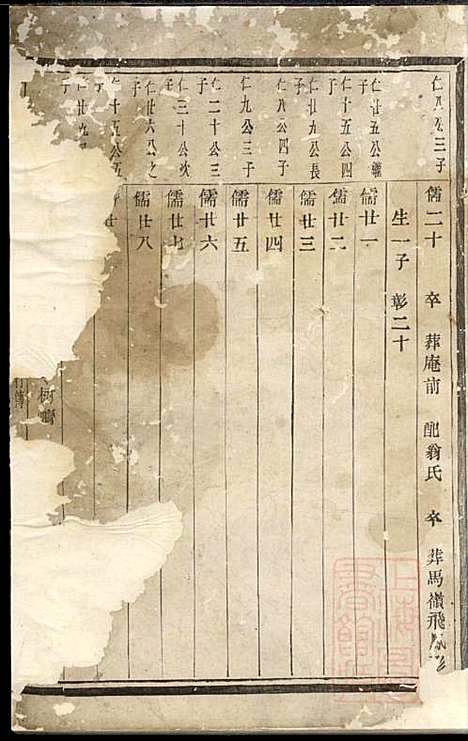 仁八公三子
儒二十 卒 葬庵前 配翁氏 卒 葬馬嶺飛
生一子 彰二十
仁廿五公繼子
儒廿一
仁十五公四子
儒廿二
仁廿九公長子
儒廿三
仁八公四子
儒廿四
仁九公三子
儒廿五
仁二十公三子
儒廿六
仁三十公次子
儒廿七
仁廿六公之子
儒廿八
仁十五公五子
仁廿九